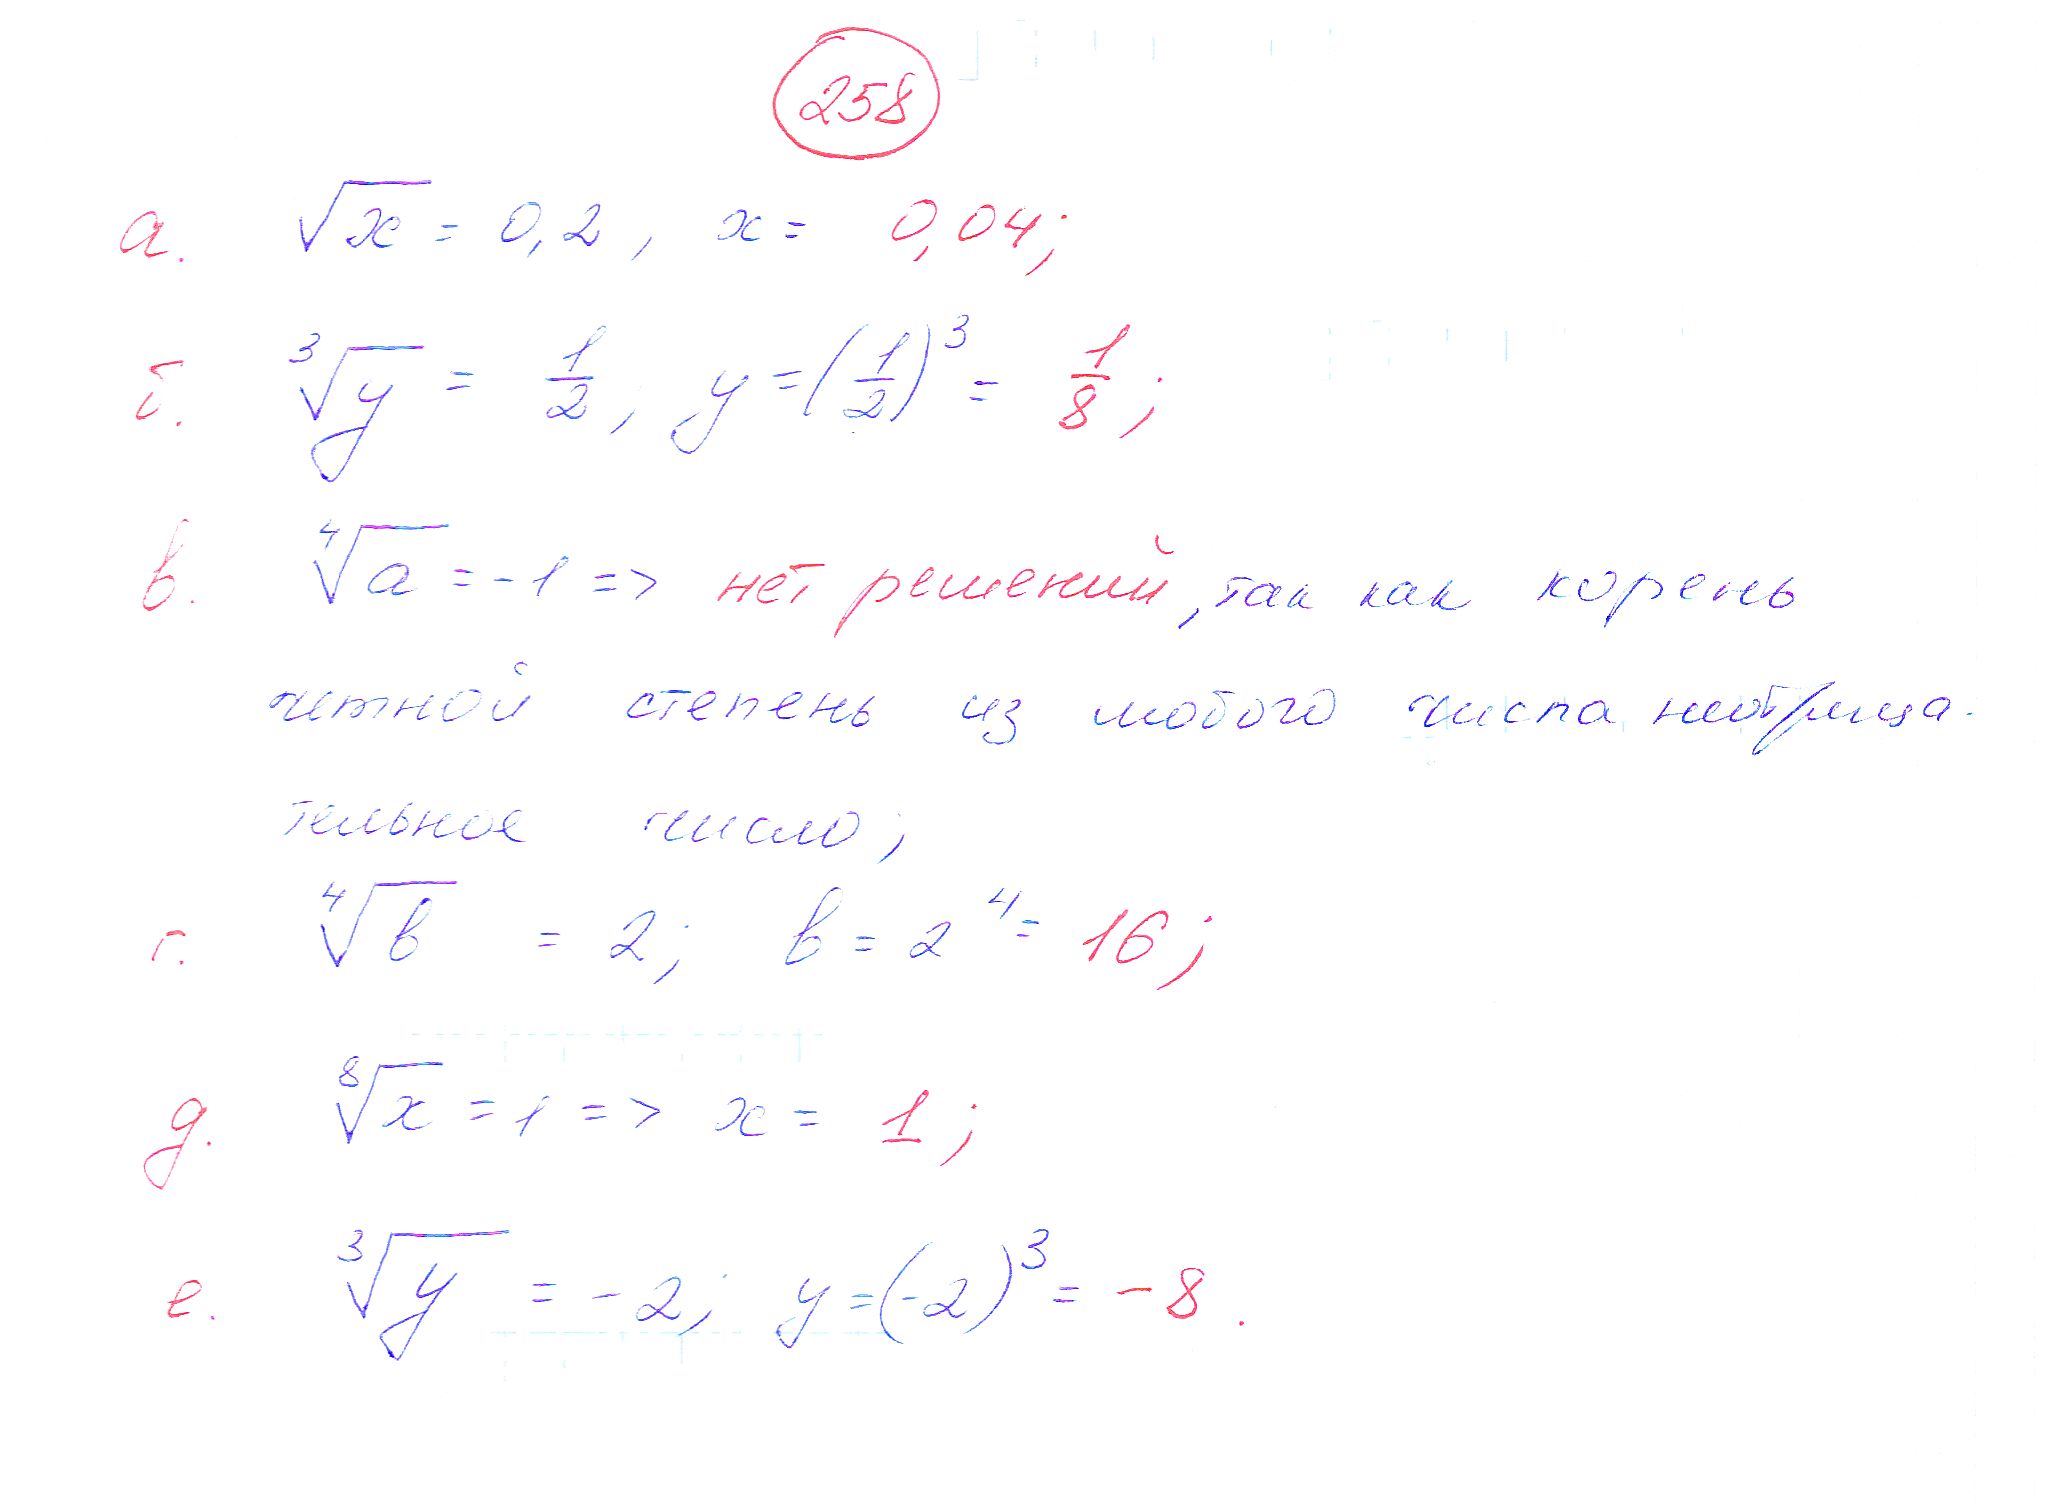 258
а. √x = 0,2, x = 0,04;
б. ³√y = 1/2, y = (1/2)³ = 1/8;
в. ⁴√a = -1 => нет решений, так как корень
четной степень из любого числа неотрица-
тельное число;
г. ⁴√в = 2; в = 2⁴ = 16;
д. ⁸√x = 1 => x = 1;
е. ³√y = -2; y = (-2)³ = -8.